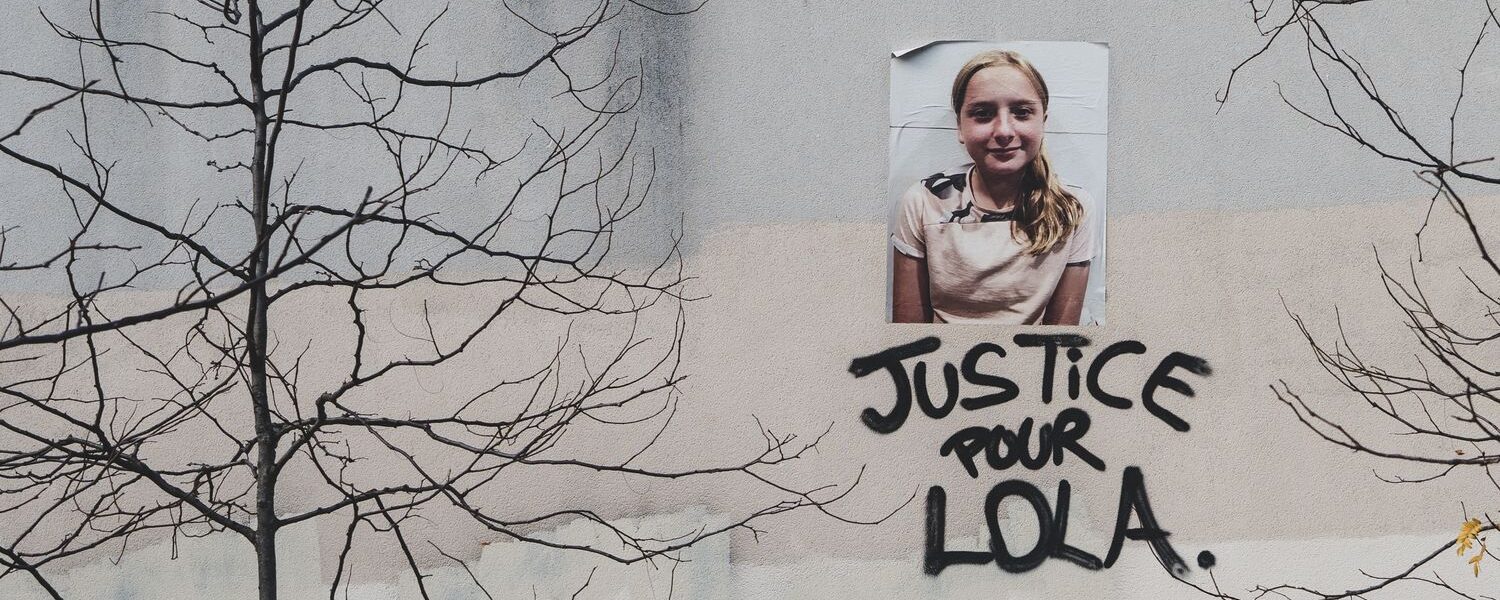 JUSTiCE
POUR
LOLA.